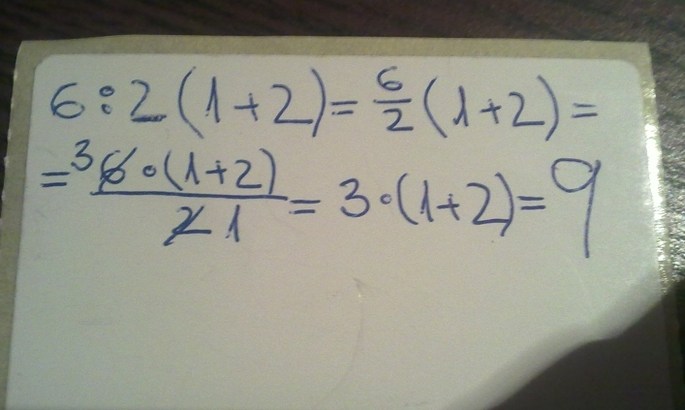 6:2(1+2)=6/2(1+2)=
=3 6·(1+2)/2 1=3·(1+2)=9